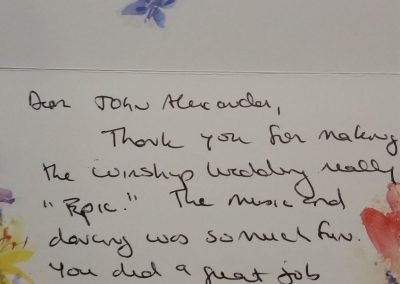 Dear John Alexander,
Thank you for making
the Winship Wedding really
"Epic." The music and
dancing was so much fun.
You did a great job